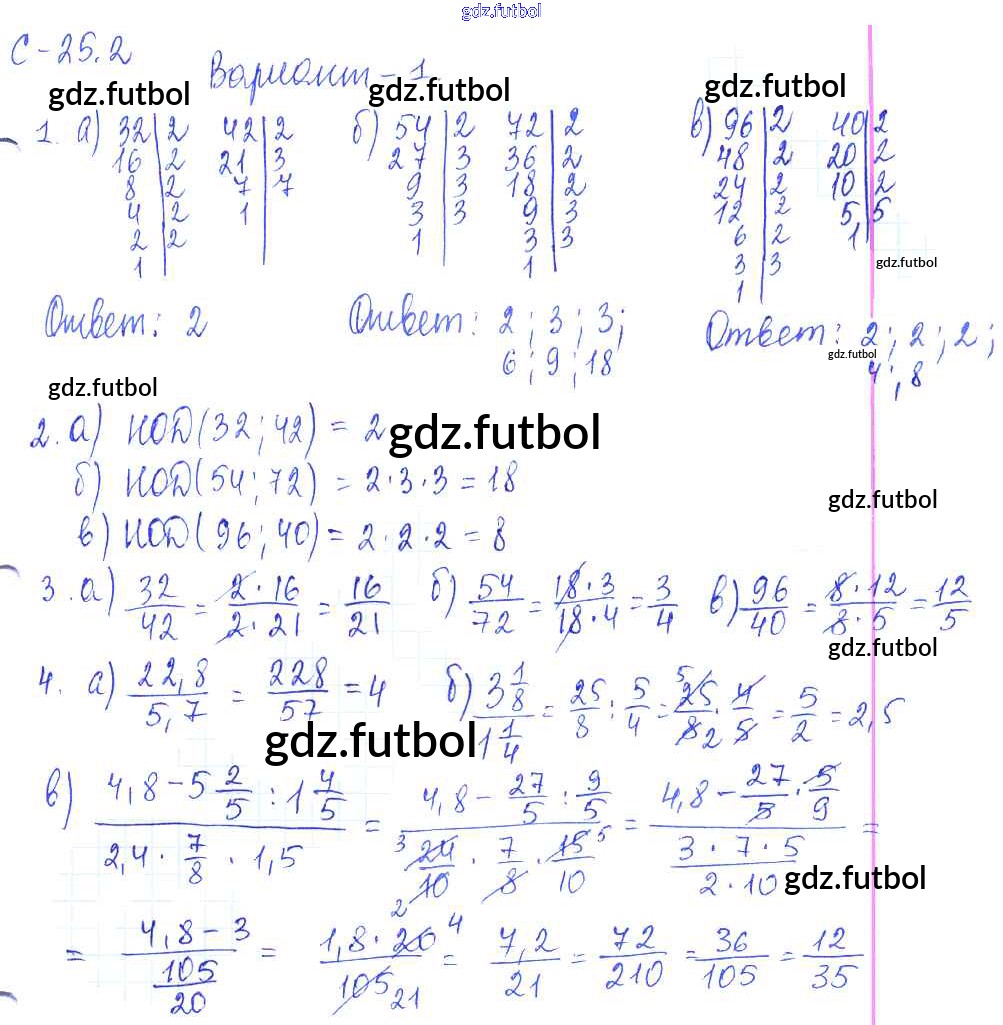 gdz.futbol
С-25.2
Вариант-1.
gdz.futbol gdz.futbol gdz.futbol
1. а) 32|2 42|2 б) 54|2 72|2 в) 96|2 40|2
16|2 21|3 27|3 36|2 48|2 20|2
8|2 7|7 9|3 18|2 24|2 10|2
4|2 1 3|3 9|3 12|2 5|5
2|2 1 3|3 6|2 1
1 1 3|3
1
gdz.futbol
Ответ: 2 Ответ: 2; 3; 3; Ответ: 2; 2; 2;
6; 9; 18 4; 8
gdz.futbol
gdz.futbol
2. а) НОД(32; 42) = 2
gdz.futbol
б) НОД(54; 72) = 2·3·3 = 18
gdz.futbol
в) НОД(96; 40) = 2·2·2 = 8
3. а) 32/42 = 2·16/2·21 = 16/21 б) 54/72 = 18·3/18·4 = 3/4 в) 96/40 = 8·12/8·5 = 12/5
gdz.futbol
4. а) 22,8/5,7 = 228/57 = 4 б) 3 1/8 / 1 1/4 = 25/8 : 5/4 = 5 25/8 2 · 4/5 = 5/2 = 2,5
gdz.futbol
в) 4,8 - 5 2/5 : 1 4/5 / 2,4 · 7/8 · 1,5 = 4,8 - 27/5 : 9/5 / 3 24/10 2 · 7/8 · 15 5/10 = 4,8 - 27/5 · 5/9 / 3·7·5/2·10 =
gdz.futbol
= 4,8 - 3 / 105/20 = 1,8 · 20 4 / 105 21 = 7,2/21 = 72/210 = 36/105 = 12/35